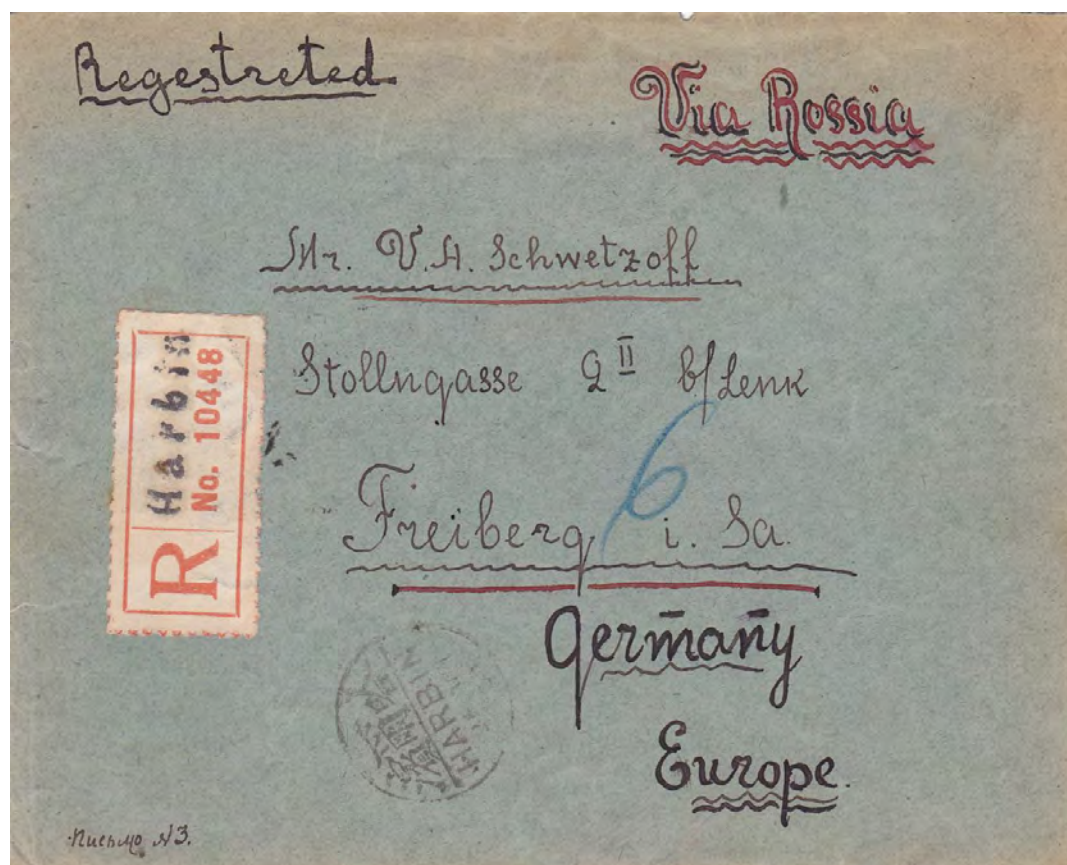 Regestreted.
Via Rossia
Mr. V. A. Schwetzoff
Stollngasse 9 II b/Lenk
6
Freiberg i. Sa.
Germany
Europe.
R Harbin
No. 10448
HARBIN
Письмо N3.